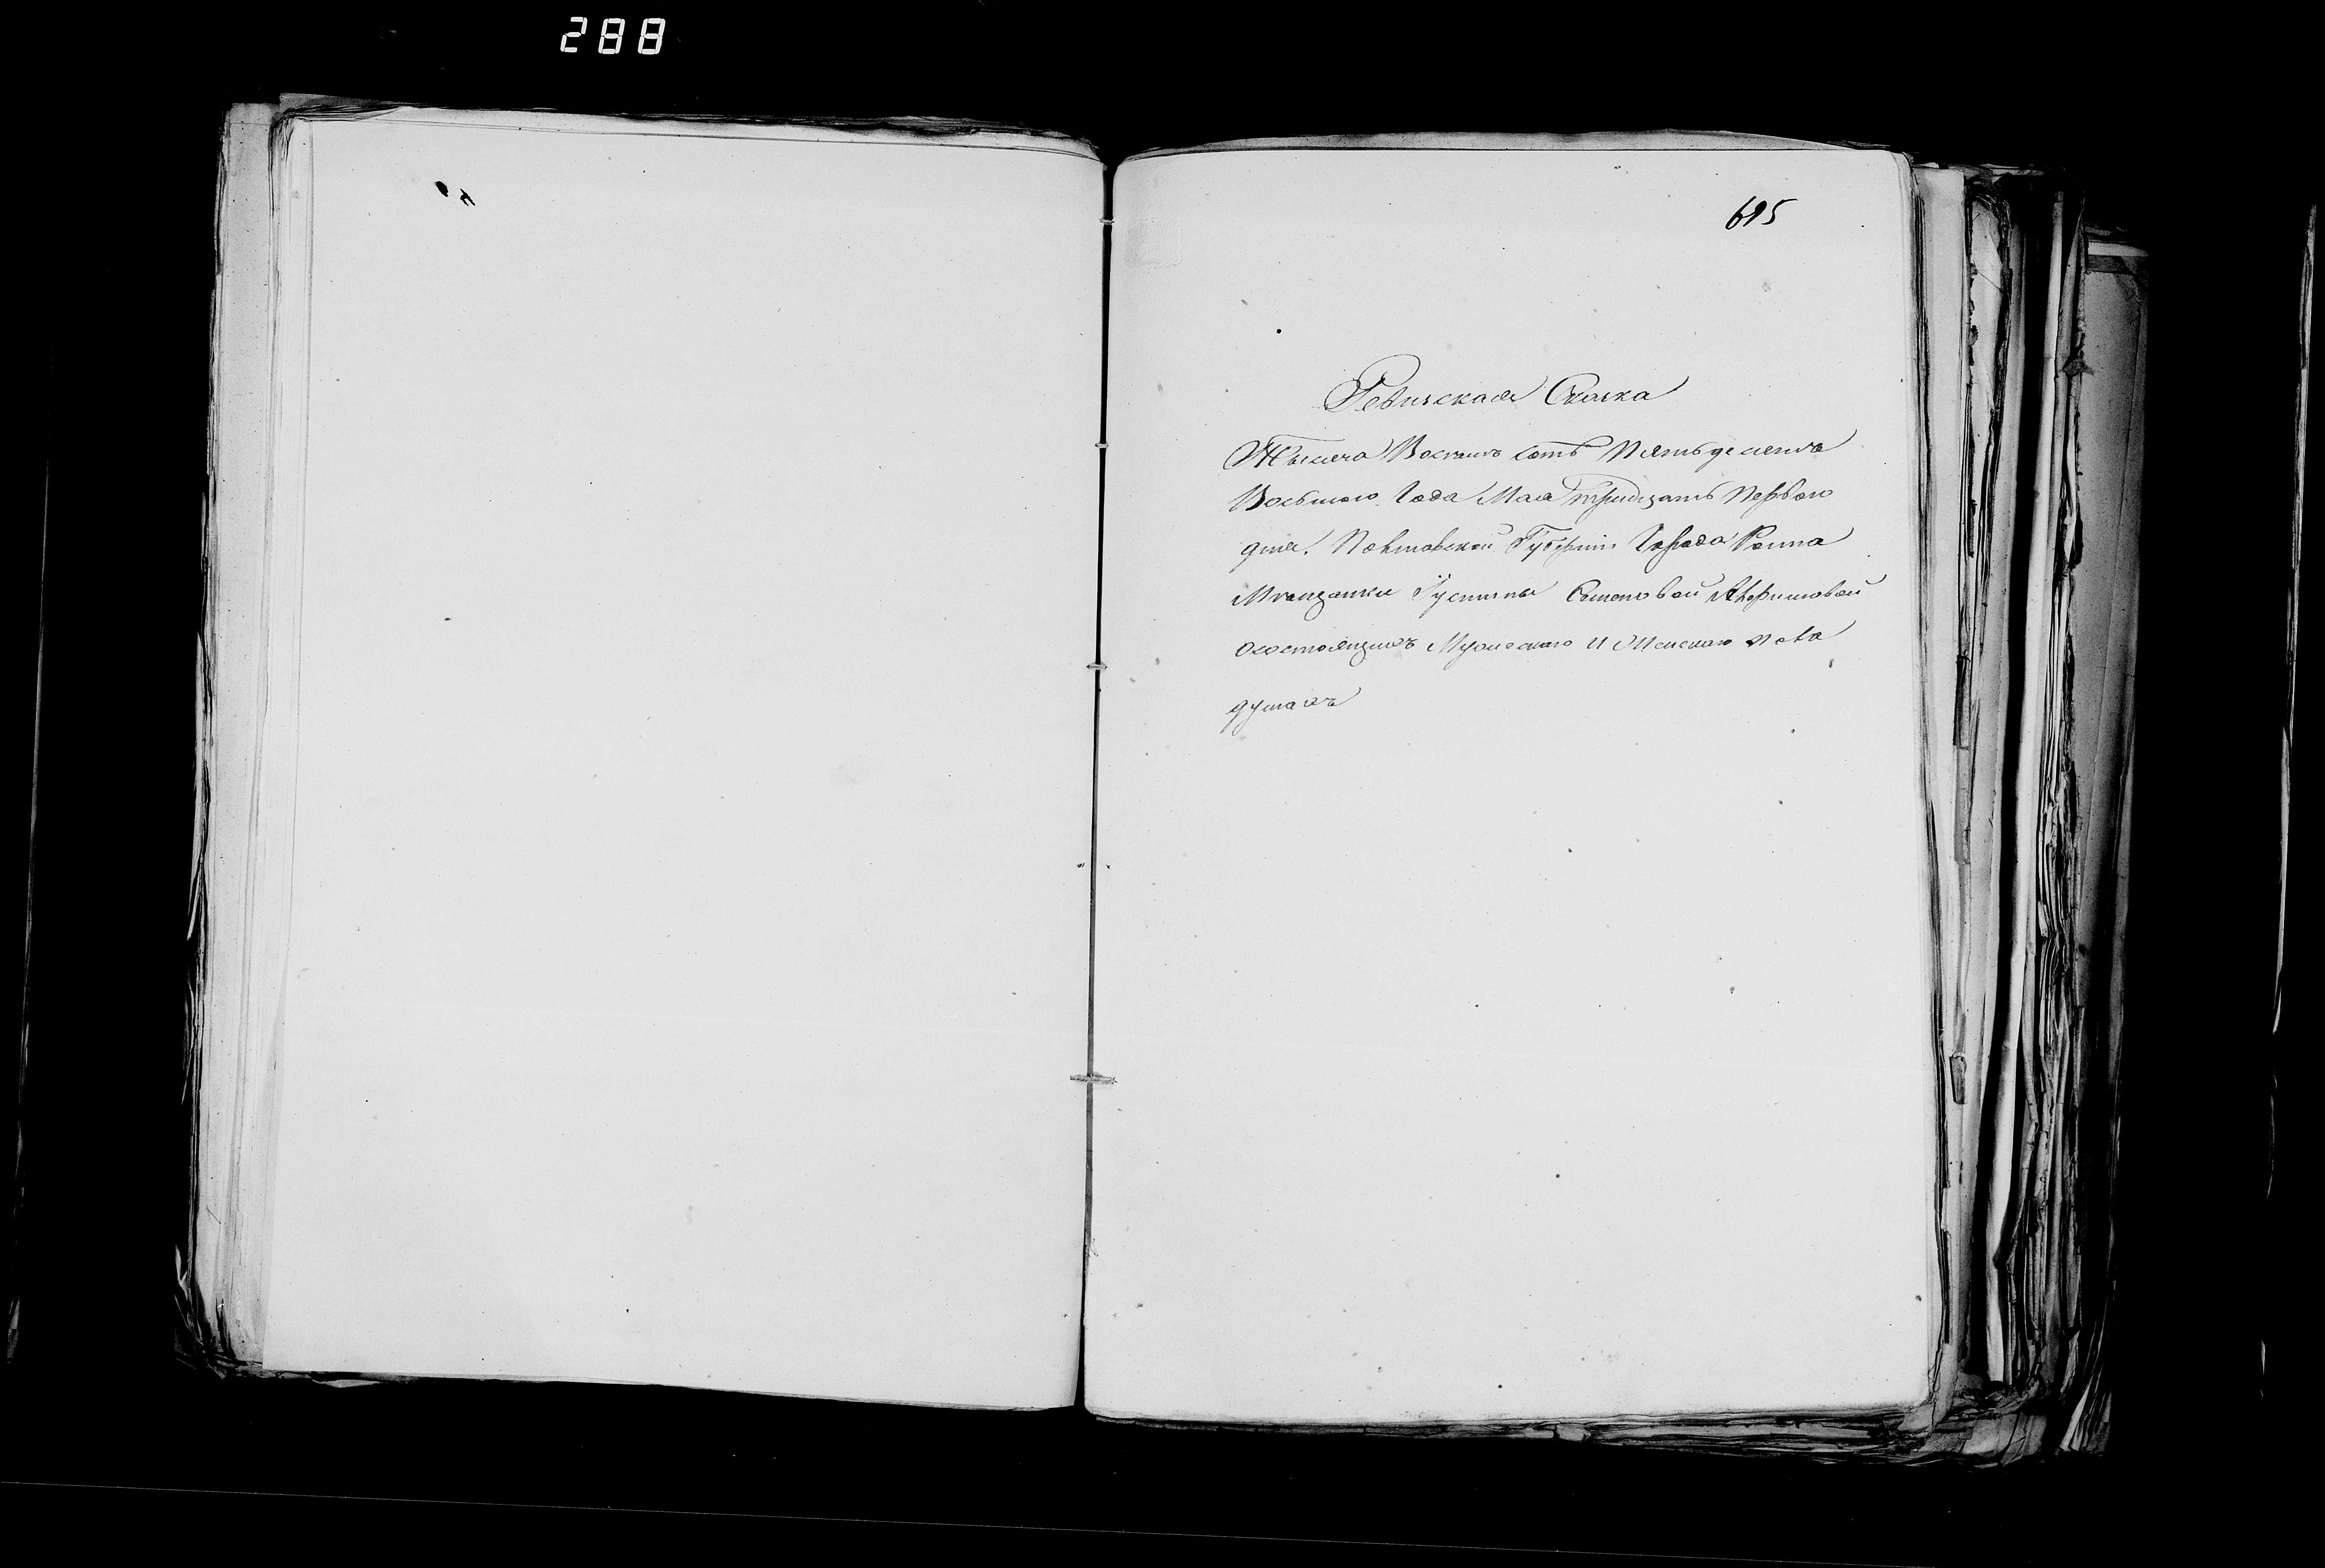 288
695
Ревизская Сказка
Тысяча Восемь сотъ Пятьдесятъ
Восьмого Года Мая тридцать Первого
дня. Полтавской Губерніи Города Ромна
Мѣщанки Устины Семеновой
осостоящихъ Мужеского И Женскаго пола
душахъ